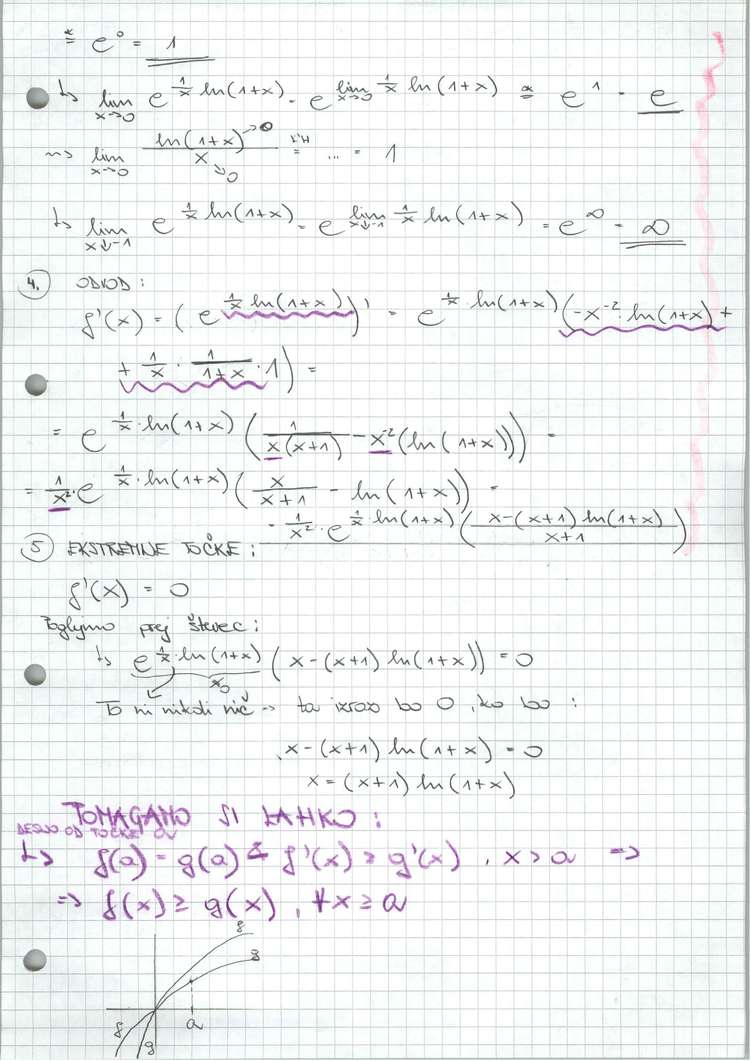 * = e^0 = 1
↳ lim x→0 e^(1/x ln(1+x)) = e^(lim x→0 1/x ln(1+x)) *= e^1 = e
~> lim x→0 ln(1+x)→0 / x→0 L'H= ... = 1
↳ lim x↓-1 e^(1/x ln(1+x)) = e^(lim x↓-1 1/x ln(1+x)) = e^∞ = ∞
4. ODVOD:
f'(x) = (e^(1/x ln(1+x)))' = e^(1/x · ln(1+x)) (-x^-2 · ln(1+x) +
+ 1/x · 1/(1+x) · 1) =
= e^(1/x · ln(1+x)) (1/(x(x+1)) - x^-2 (ln(1+x))) =
= 1/x² · e^(1/x · ln(1+x)) (x/(x+1) - ln(1+x)) =
= 1/x² · e^(1/x · ln(1+x)) ((x-(x+1) ln(1+x))/(x+1))
5 EKSTREMNE TOČKE:
f'(x) = 0
Poglejmo prej števec:
↳ e^(1/x · ln(1+x)) (x-(x+1) ln(1+x)) = 0
To ni nikoli nič → ta izraz bo 0, ko bo:
x-(x+1) ln(1+x) = 0
x = (x+1) ln(1+x)
POMAGAMO SI LAHKO:
DESNO OD TOČKE a
↳ f(a) = g(a) & f'(x) ≥ g'(x), x > a =>
=> f(x) ≥ g(x), ∀x ≥ a
f
g
a
f
g